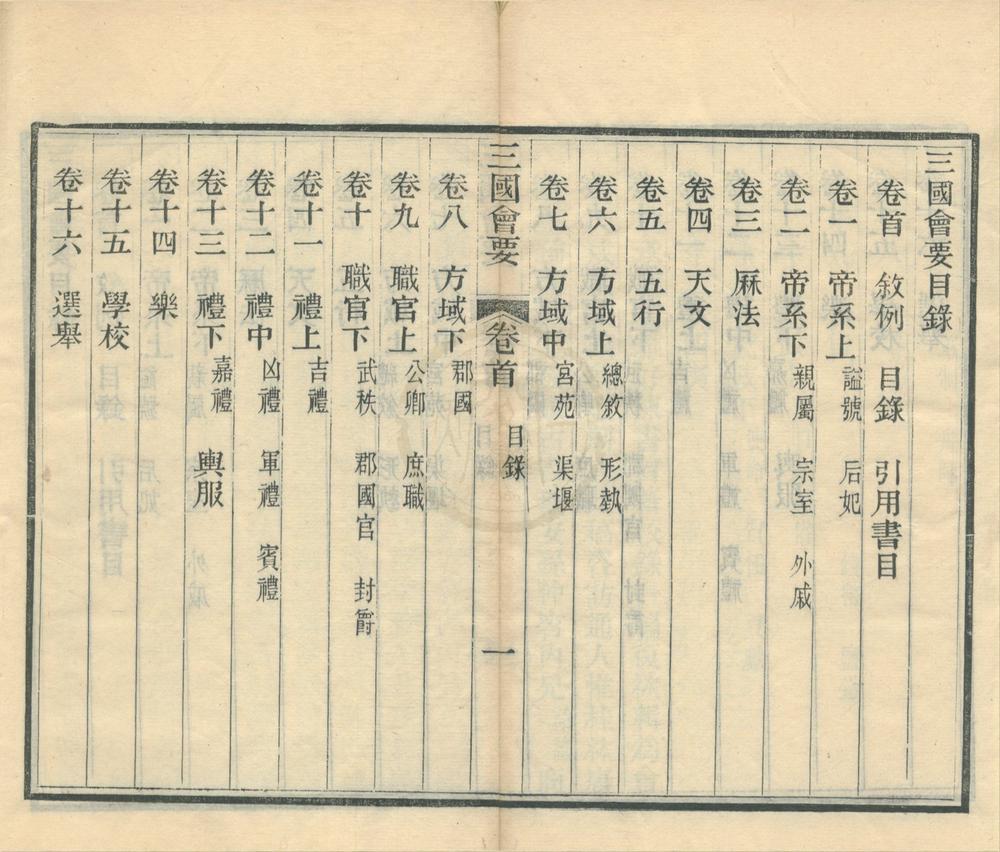 三國會要目錄
卷首 敘例 目錄 引用書目
卷一 帝系上 諡號 后妃
卷二 帝系下 親屬 宗室 外戚
卷三 厤法
卷四 天文
卷五 五行
卷六 方域上 總敘 形埶
卷七 方域中 宮苑 渠堰
三國會要 卷首 目錄 一
卷八 方域下 郡國
卷九 職官上 公卿 庶職
卷十 職官下 武秩 郡國官 封爵
卷十一 禮上 吉禮
卷十二 禮中 凶禮 軍禮 賓禮
卷十三 禮下 嘉禮 輿服
卷十四 樂
卷十五 學校
卷十六 選舉